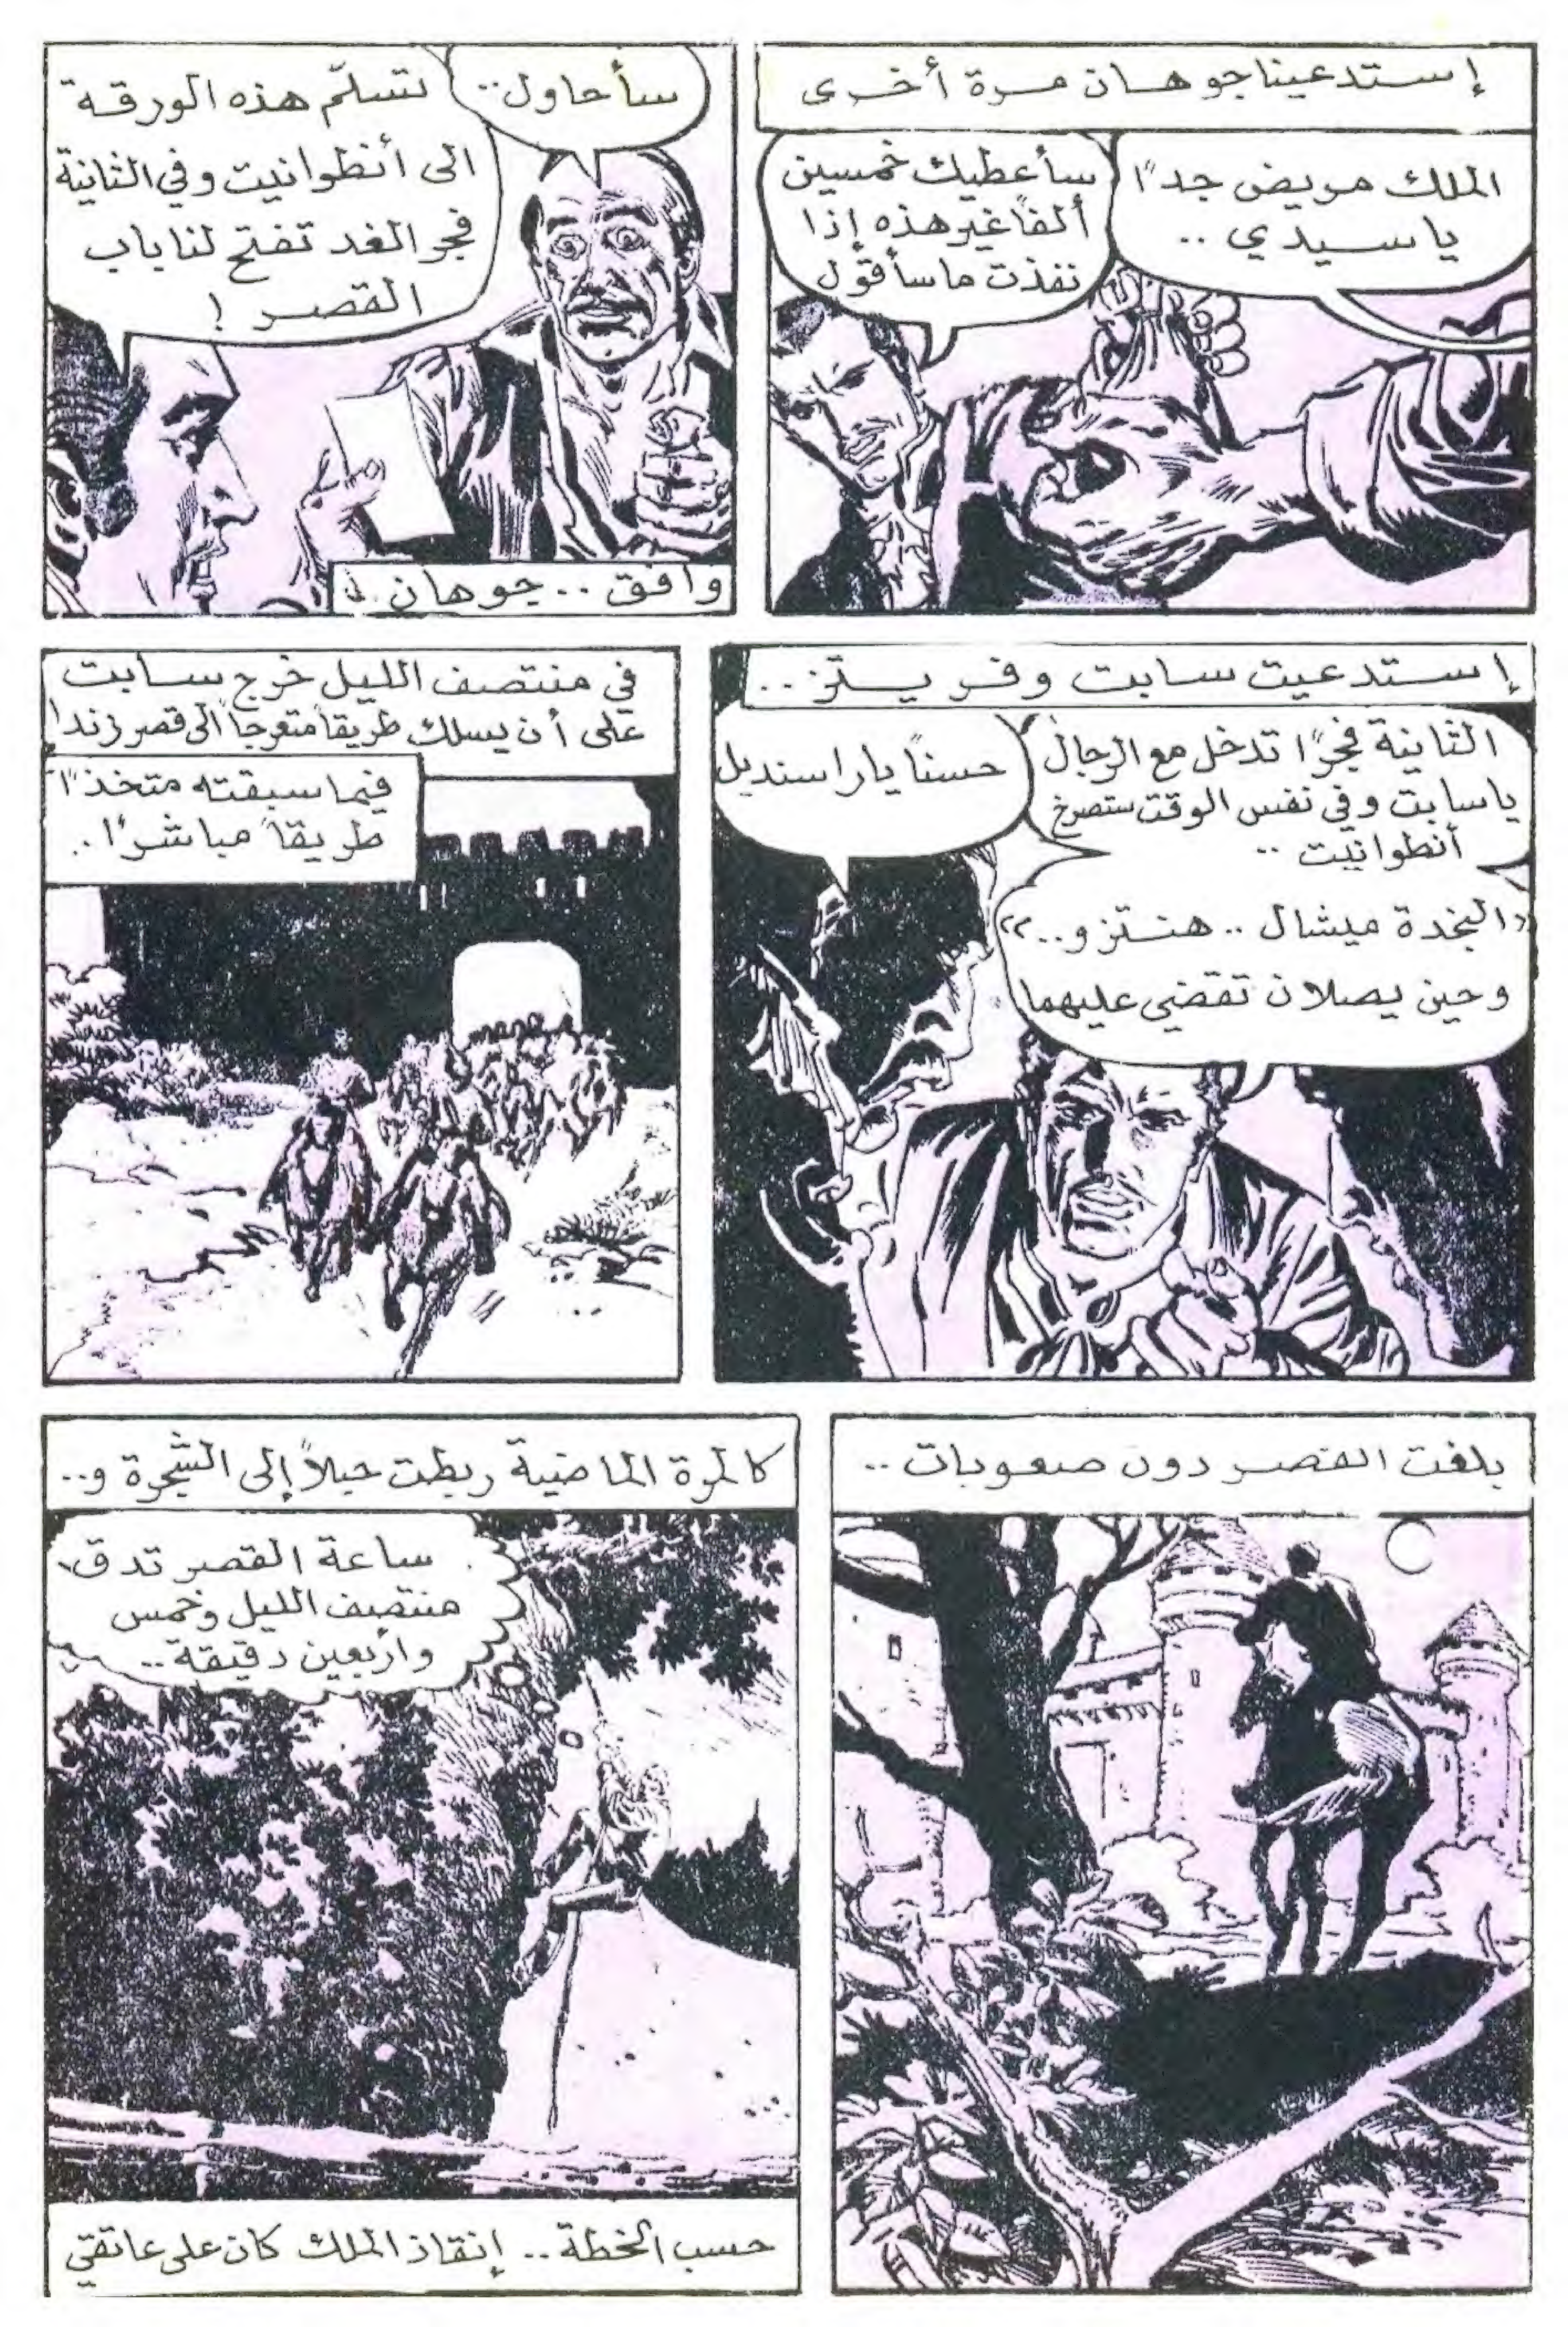 إستدعينا جوهان مرة أخرى
الملك مريض جدًا
يا سيدي ..
سأعطيك خمسين
ألفًا غير هذه إذا
نفذت ما سأقول
سأحاول..
تسلّم هذه الورقة
الى أنطوانيت وفي الثانية
فجر الغد تفتح لنا باب
القصر !
وافق .. جوهان
إستدعيت سابت وفريتز ..
الثانية فجرًا تدخل مع الرجال
يا سابت وفي نفس الوقت ستصرخ
أنطوانيت ..
«النجدة ميشال .. هنتزو..»
وحين يصلان تقضي عليهما
حسنًا يا راسنديل
في منتصف الليل خرج سابت
على أن يسلك طريقاً متعرجاً الى قصر زندا
فيما سبقته متخذًا
طريقاً مباشرًا ..
بلغت القصر دون صعوبات ..
كالمرة الماضية ربطت حبلاً إلى الشجرة و..
ساعة القصر تدق
منتصف الليل وخمس
وأربعين دقيقة ..
حسب الخطة .. إنقاذ الملك كان على عاتقي